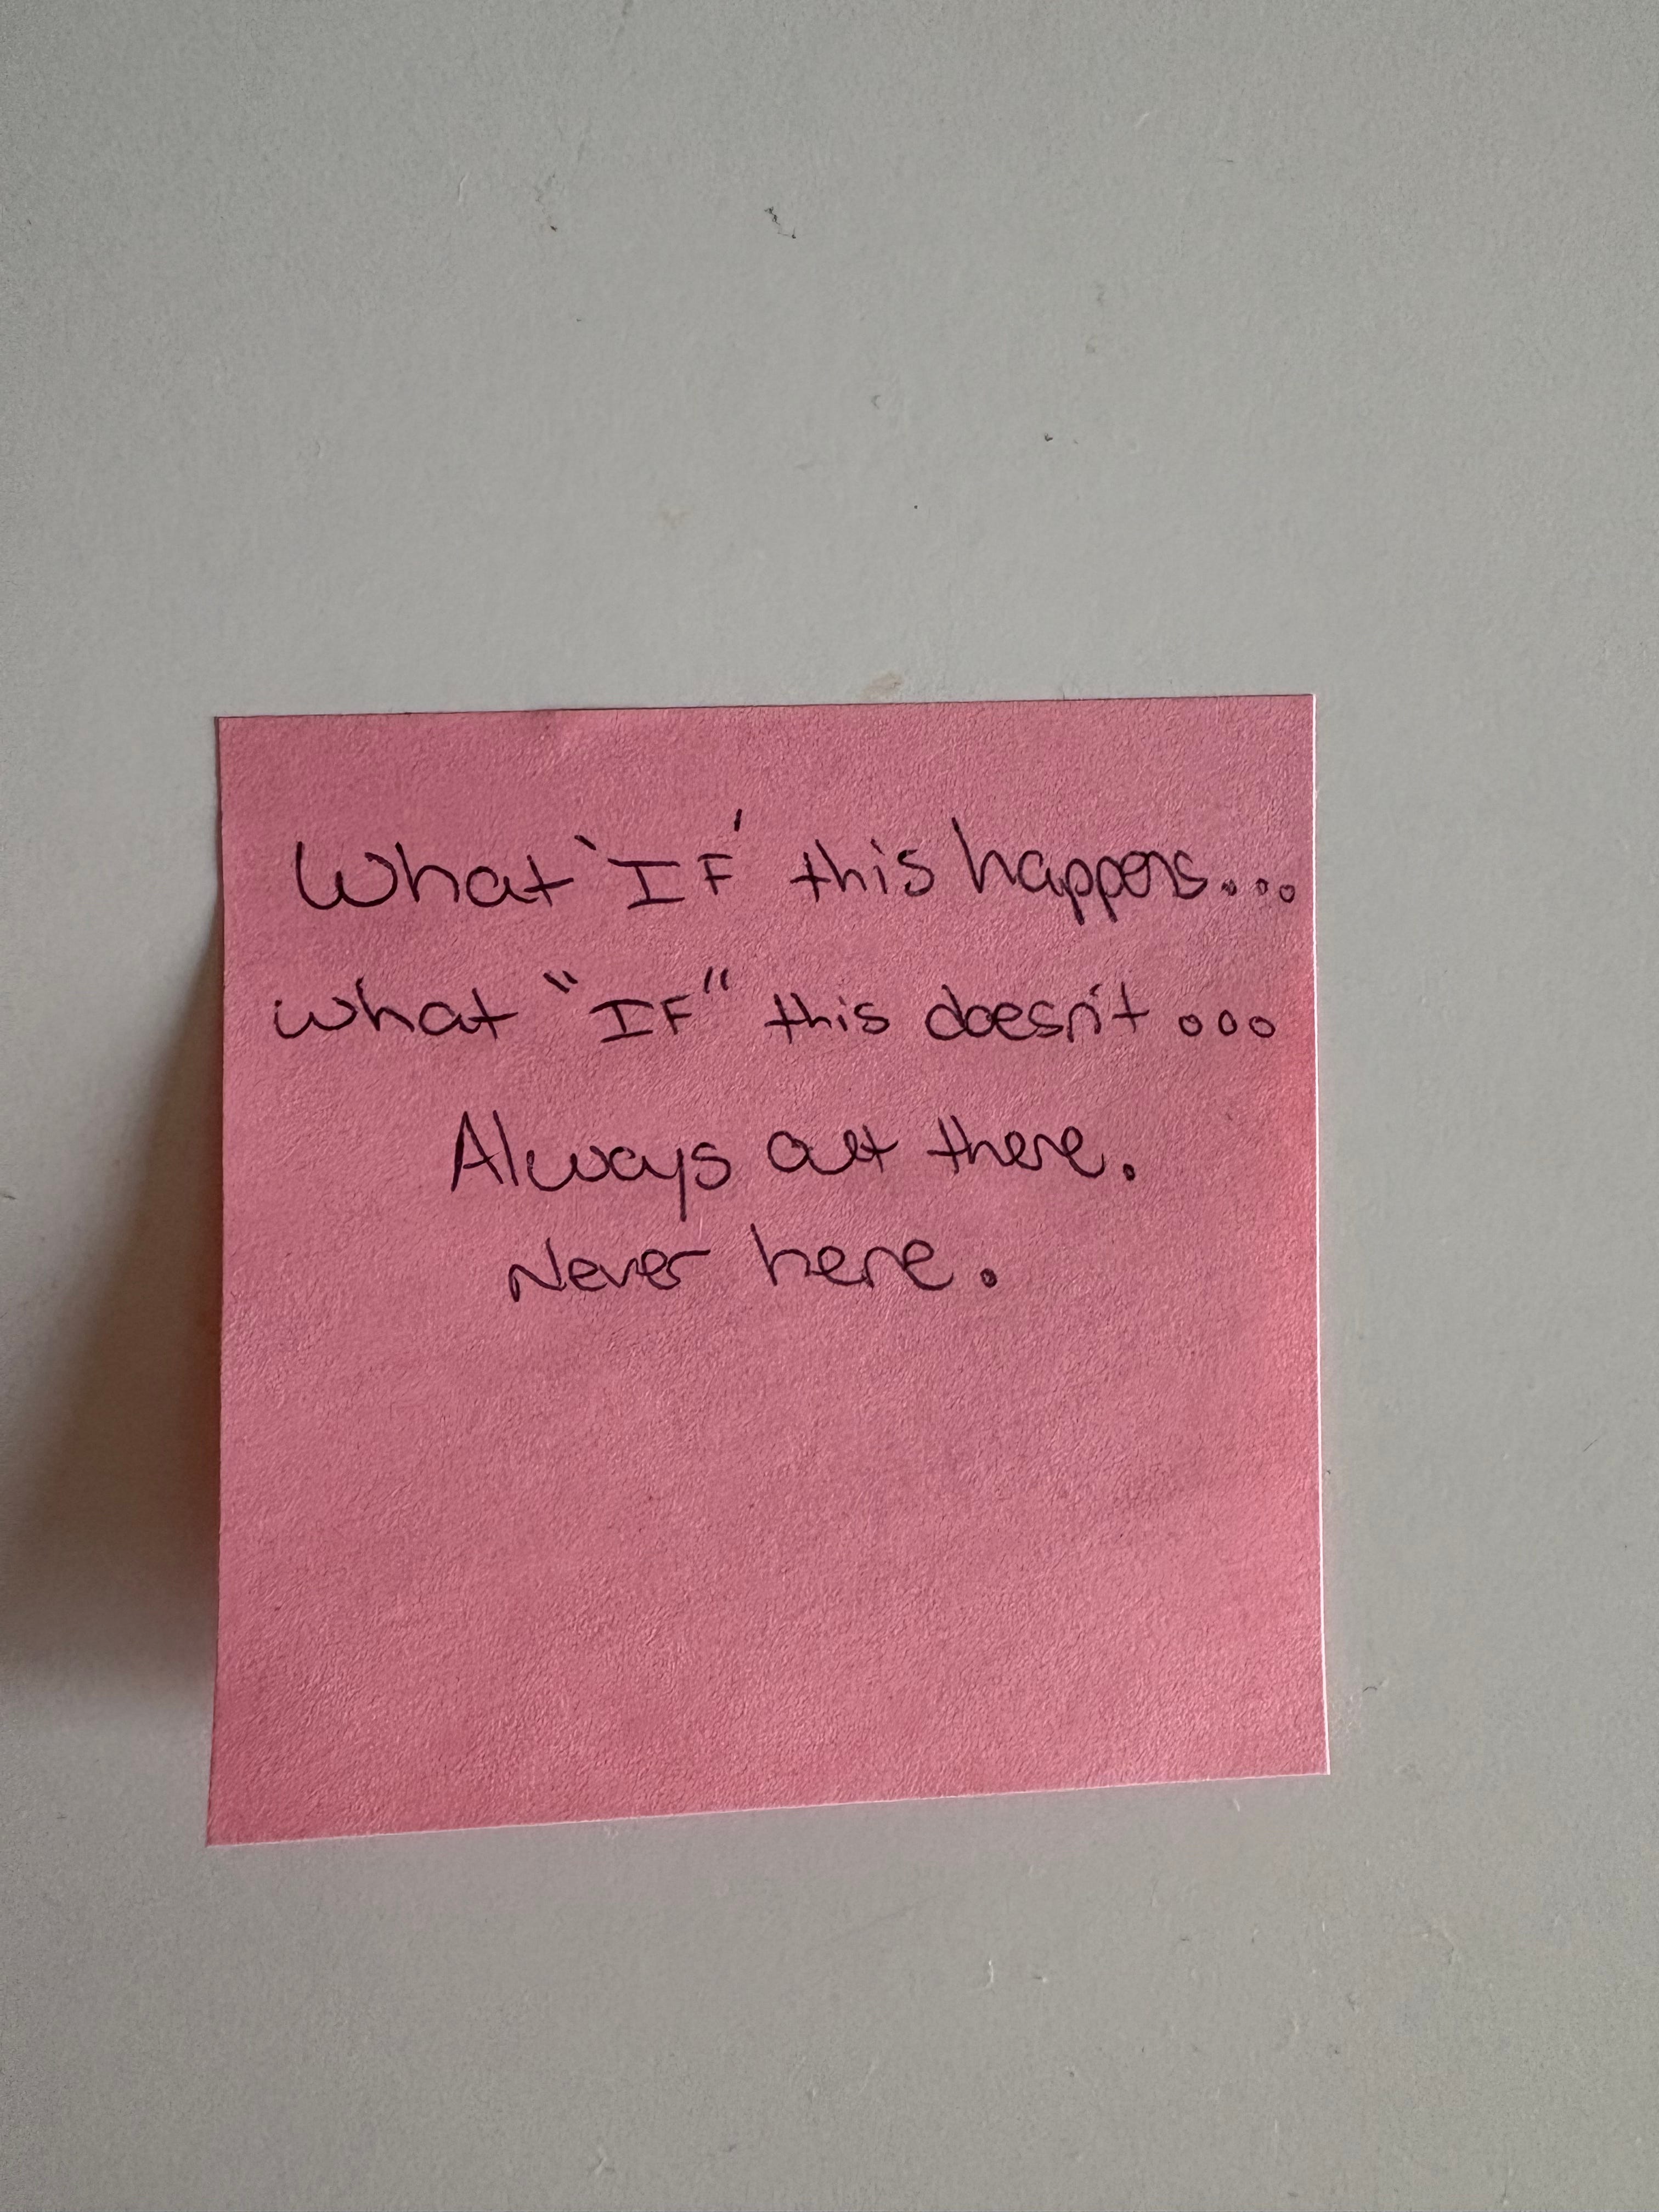 What 'IF' this happens...
what "IF" this doesn't...
Always out there.
Never here.